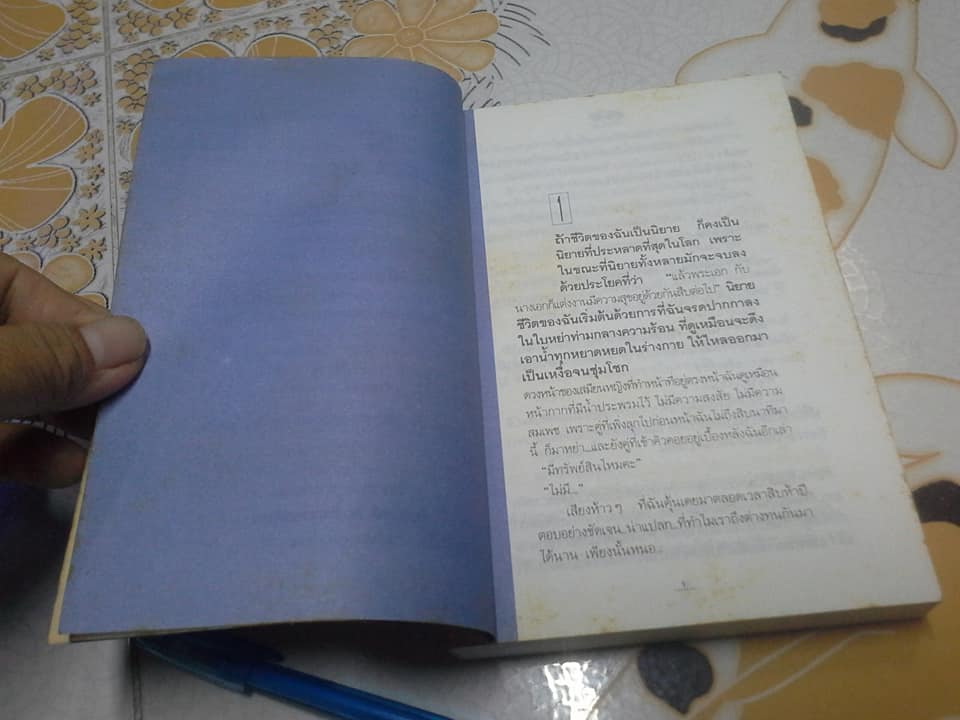 1
ถ้าชีวิตของฉันเป็นนิยาย ก็คงเป็น
นิยายที่ประหลาดที่สุดในโลก เพราะ
ในขณะที่นิยายทั้งหลายมักจะจบลง
ด้วยประโยคที่ว่า “แล้วพระเอก กับ
นางเอกก็แต่งงานมีความสุขอยู่ด้วยกันสืบต่อไป” นิยาย
ชีวิตของฉันเริ่มต้นด้วยการที่ฉันจรดปากกาลง
ในใบหย่าท่ามกลางความร้อน ที่ดูเหมือนจะดึง
เอาน้ำทุกหยาดหยดในร่างกาย ให้ไหลออกมา
เป็นเหงื่อจนชุ่มโชก
ดวงหน้าของเสมียนหญิงที่ทำหน้าที่อยู่ตรงหน้าฉันดูเหมือน
หน้ากากที่มีน้ำประพรมไว้ ไม่มีความสงสัย ไม่มีความ
สมเพช เพราะคู่ที่เพิ่งลุกไปก่อนหน้าฉันไม่ถึงสิบนาทีมา
นี้ ก็มาหย่า...และยังคู่ที่เข้าคิวคอยอยู่เบื้องหลังฉันอีกเล่า
“มีทรัพย์สินไหมคะ”
“ไม่มี...”
เสียงห้าวๆ ที่ฉันคุ้นเคยมาตลอดเวลาสิบห้าปี
ตอบอย่างชัดเจน...น่าแปลก...ที่ทำไมเราถึงต่างทนกันมา
ได้นาน เพียงนั้นหนอ...